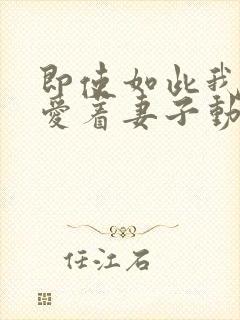 即使如此我
爱着妻子動
任江石